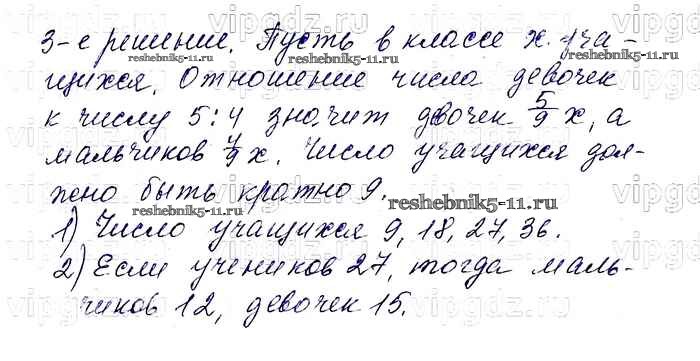 3-е решение. Пусть в классе x уча-
щихся. Отношение числа девочек
к числу 5:4 значит девочек 5/9 x, а
мальчиков 4/9 x. Число учащихся дол-
жно быть кратно 9.
1) Число учащихся 9, 18, 27, 36.
2) Если учеников 27, тогда маль-
чиков 12, девочек 15.
reshebnik5-11.ru
reshebnik5-11.ru
reshebnik5-11.ru
reshebnik5-11.ru
vipgdz.ru